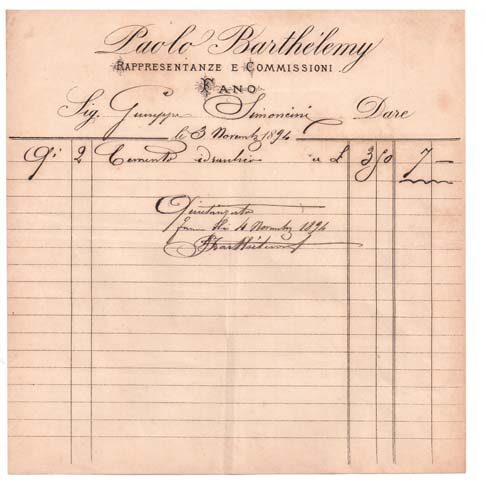 Paolo Barthélemy
RAPPRESENTANZE E COMMISSIONI
FANO
Sig. Giuseppe Simoncini Dare
li 3 Novembre 1894
Qi 2 Cemento idraulico a £ 3 50 7 —
Quietanzato
Fano li 4 Novembre 1894
PBarthélemy